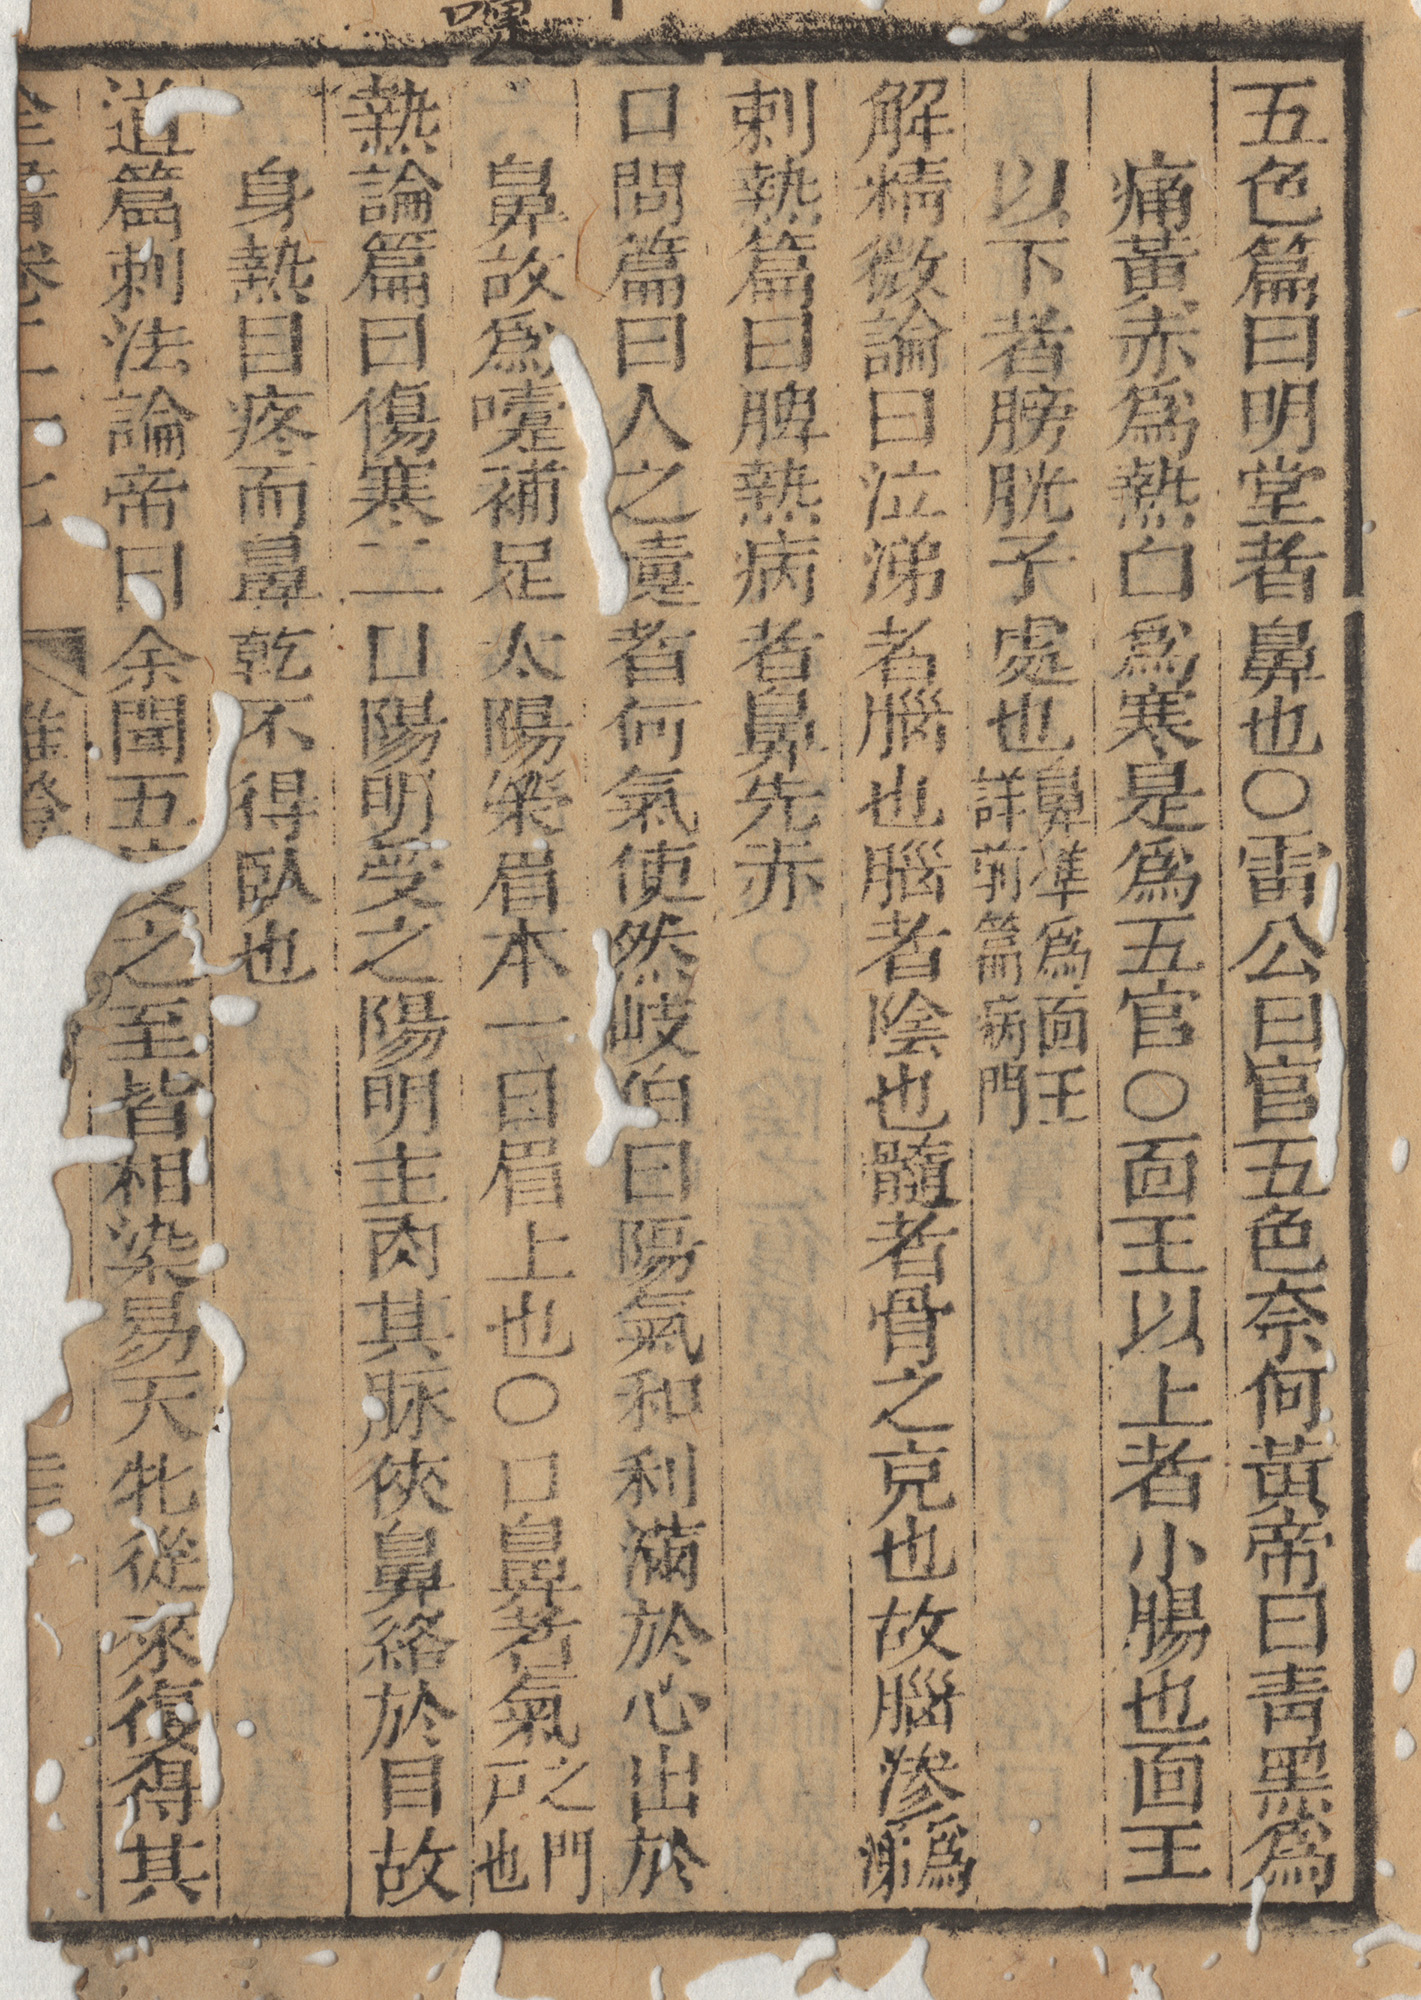 五色篇曰明堂者鼻也〇雷公曰官五色奈何黃帝曰青黑爲
痛黃赤爲熱白爲寒是爲五官〇面王以上者小腸也面王
以下者膀胱子處也鼻準爲面王詳前篇病門
解精微論曰泣涕者腦也腦者陰也髓者骨之充也故腦滲爲涕
刺熱篇曰脾熱病者鼻先赤
口問篇曰人之嚏者何氣使然岐伯曰陽氣和利滿於心出於
鼻故爲嚏補足太陽榮眉本一曰眉上也〇口鼻者氣之門戸也
熱論篇曰傷寒二日陽明受之陽明主肉其脈俠鼻絡於目故
身熱目疼而鼻乾不得臥也
道篇刺法論帝曰余聞五疫之至皆相染易天牝從來復得其
全書卷二十七
雜證
三